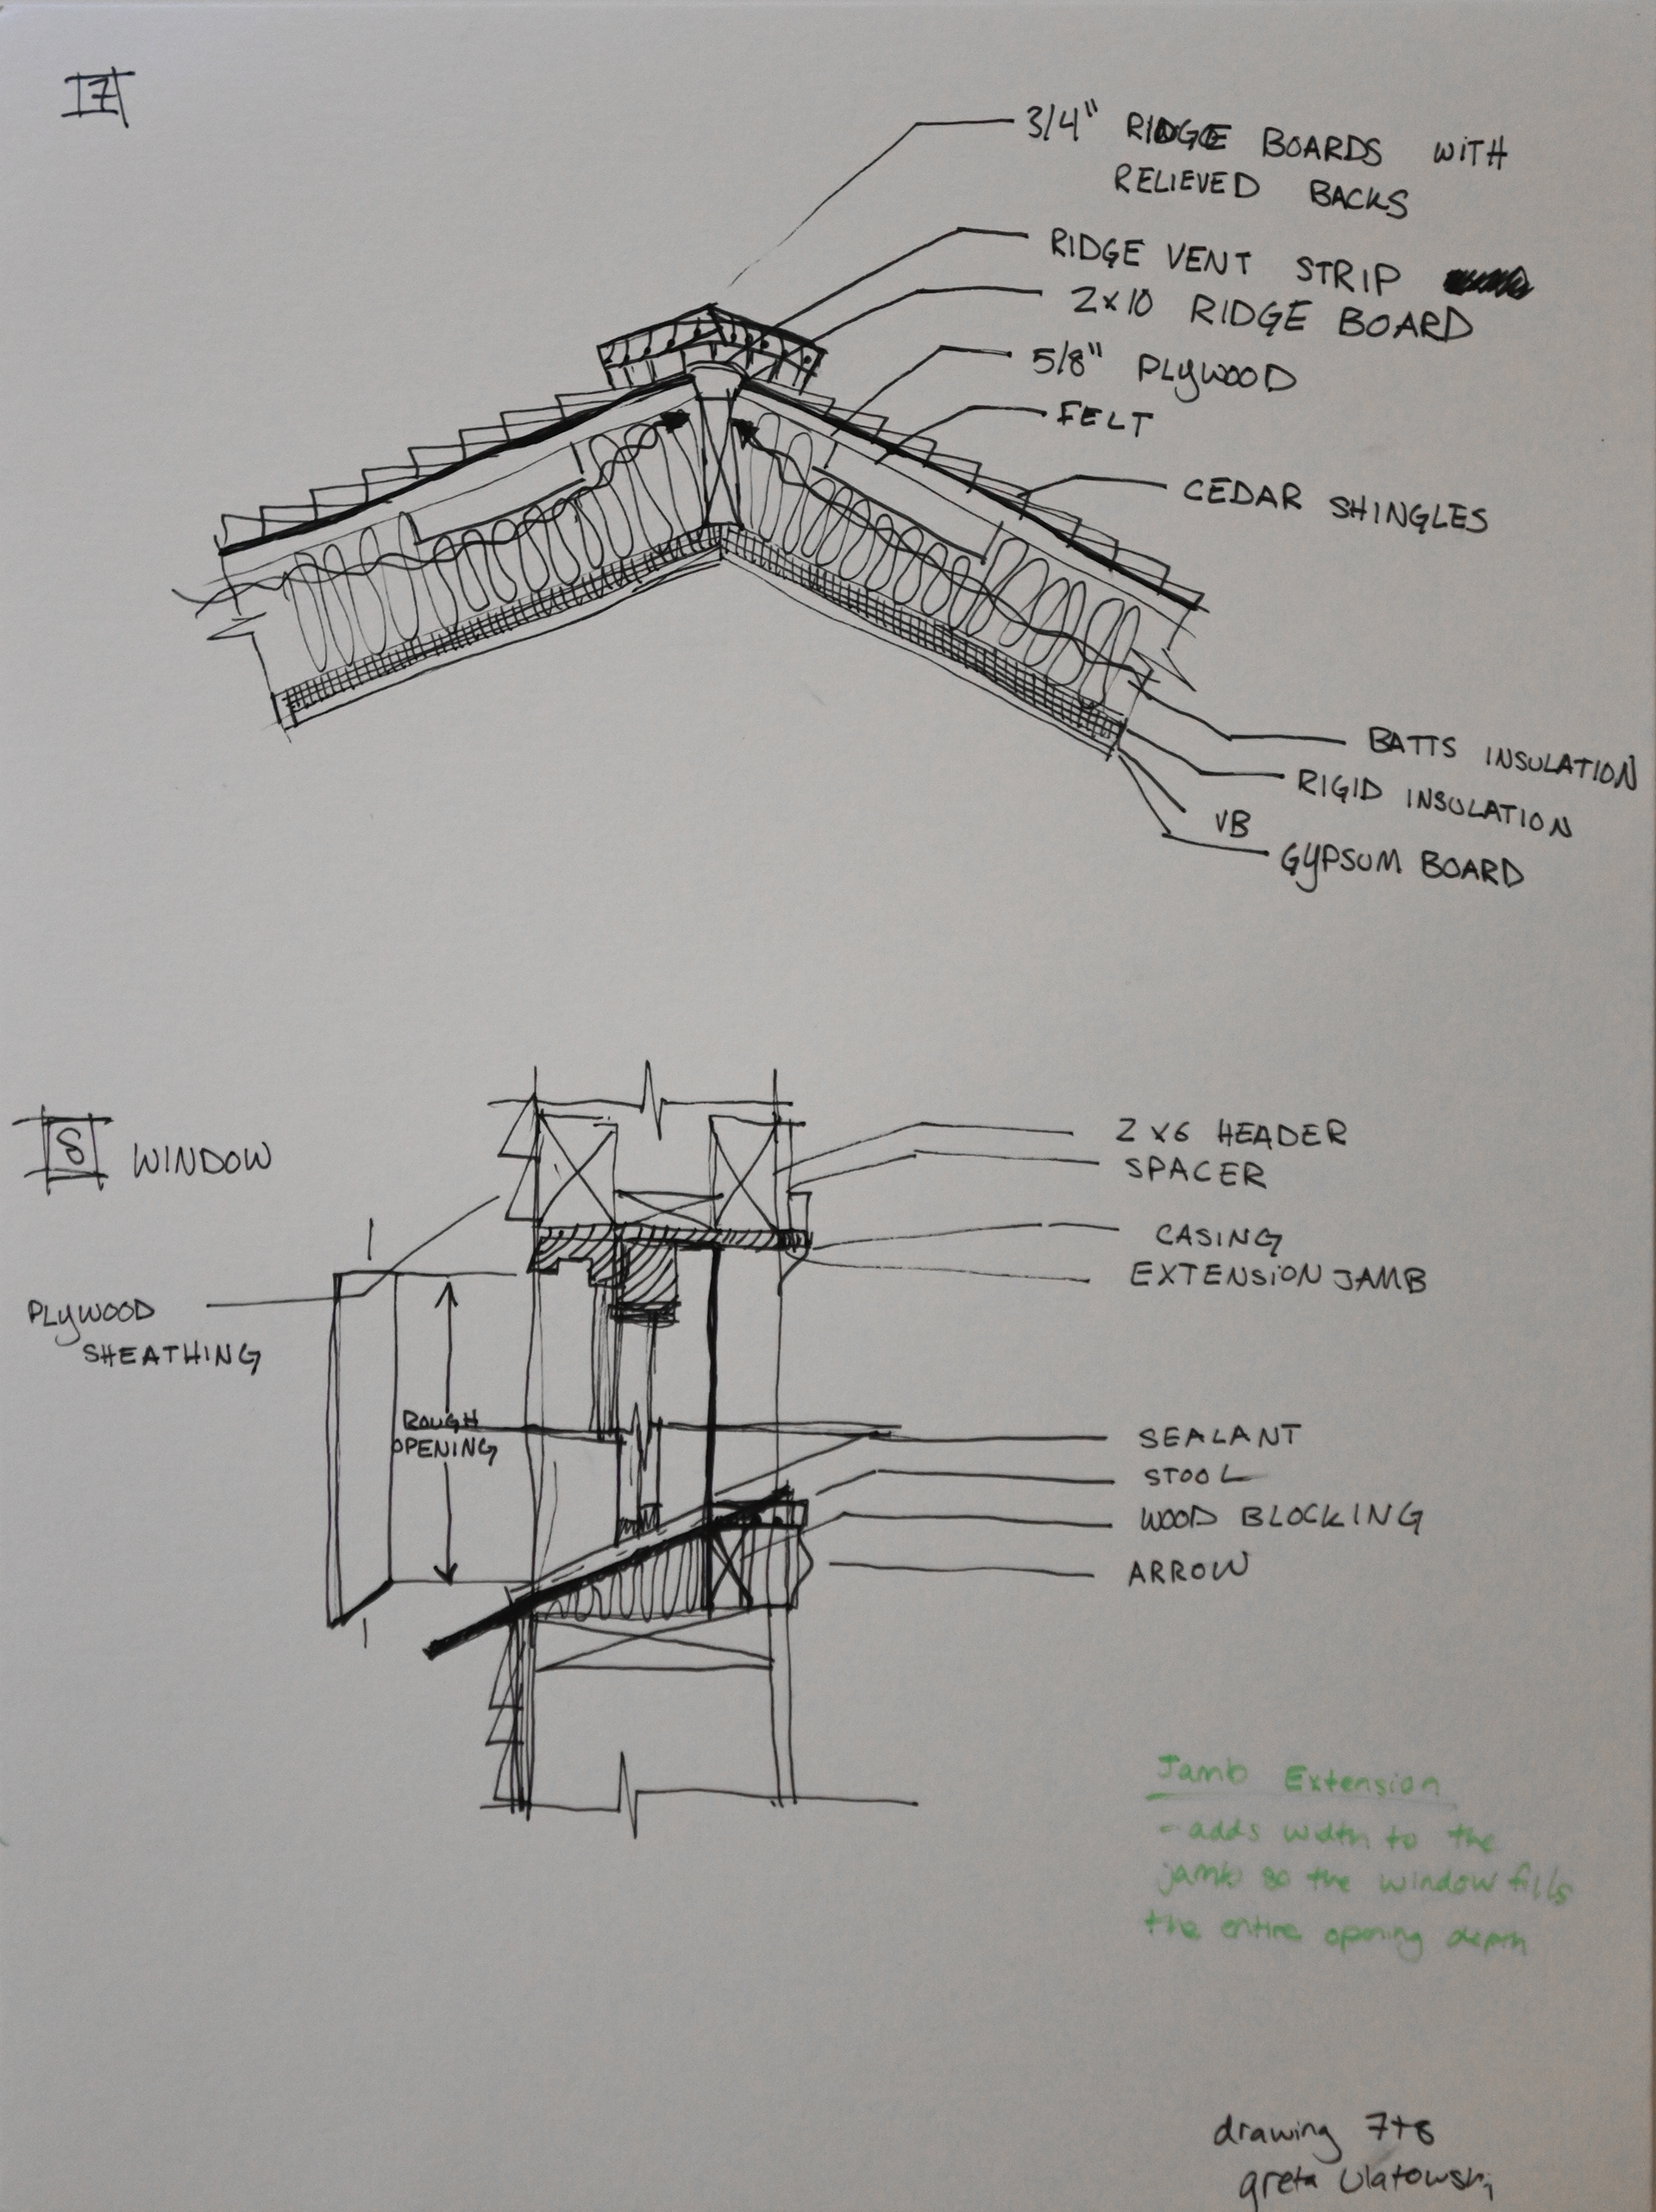 7
3/4" RIDGE BOARDS WITH
RELIEVED BACKS
RIDGE VENT STRIP
2x10 RIDGE BOARD
5/8" PLYWOOD
FELT
CEDAR SHINGLES
BATTS INSULATION
RIGID INSULATION
VB
GYPSUM BOARD
8 WINDOW
2x6 HEADER
SPACER
CASING
EXTENSION JAMB
PLYWOOD
SHEATHING
ROUGH
OPENING
SEALANT
STOOL
WOOD BLOCKING
ARROW
Jamb Extension
- adds width to the
jamb so the window fills
the entire opening depth
drawing 7+8
greta Ulatowski